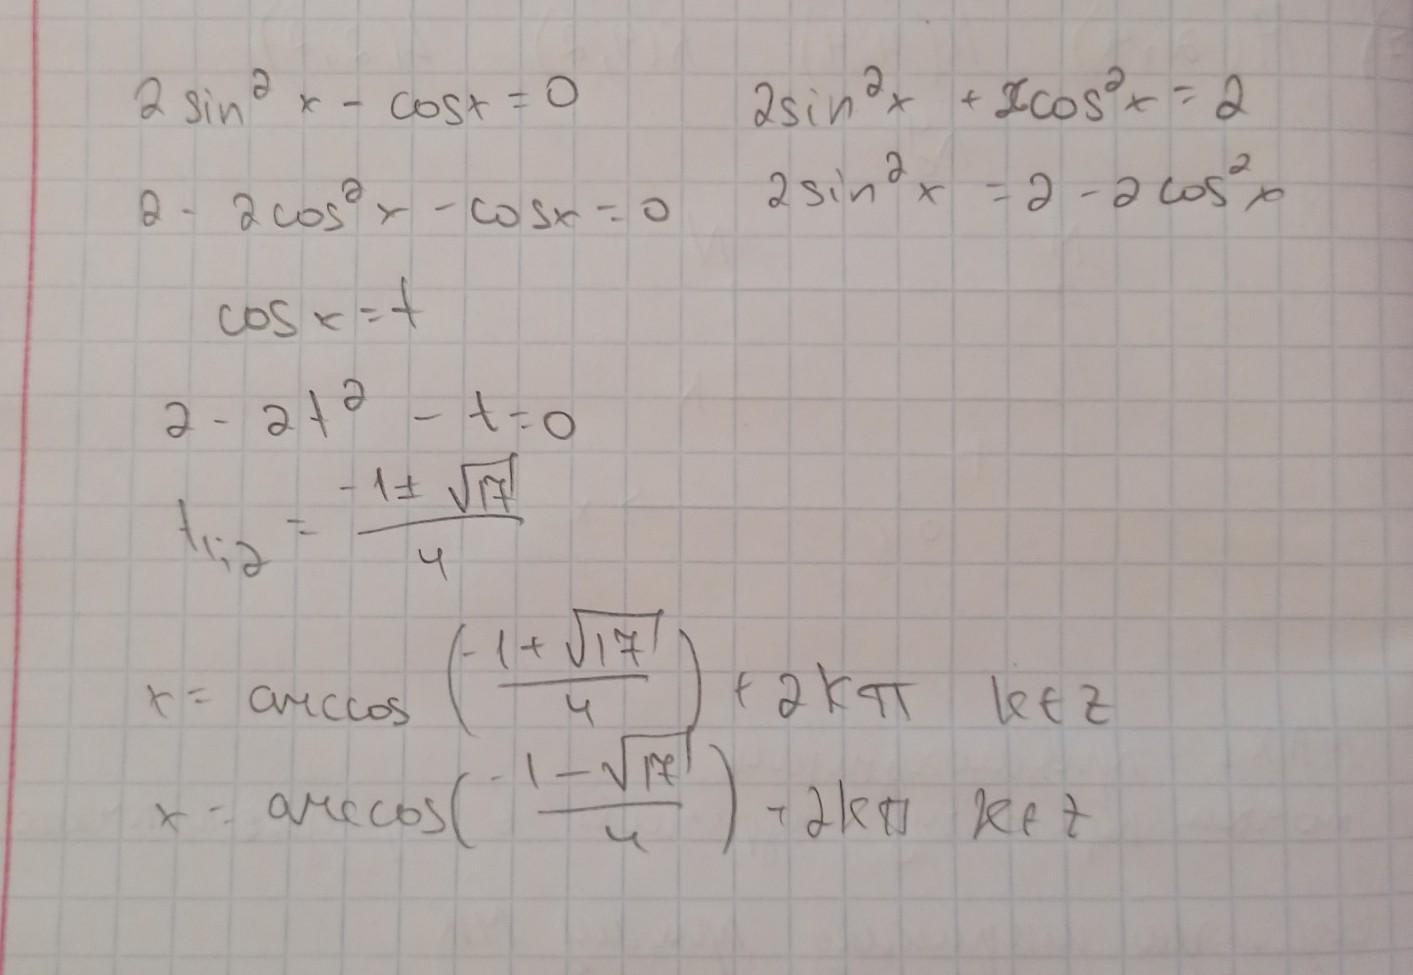 2 sin² x - cosx = 0
2 - 2cos² x - cosx = 0
2sin² x + 2cos² x = 2
2sin² x = 2 - 2cos² x
cos x = t
2 - 2t² - t = 0
t₁;₂ = (-1 ± √17) / 4
x = arccos ((-1 + √17) / 4) + 2kπ k ∈ z
x = arccos ((-1 - √17) / 4) + 2kπ k ∈ z